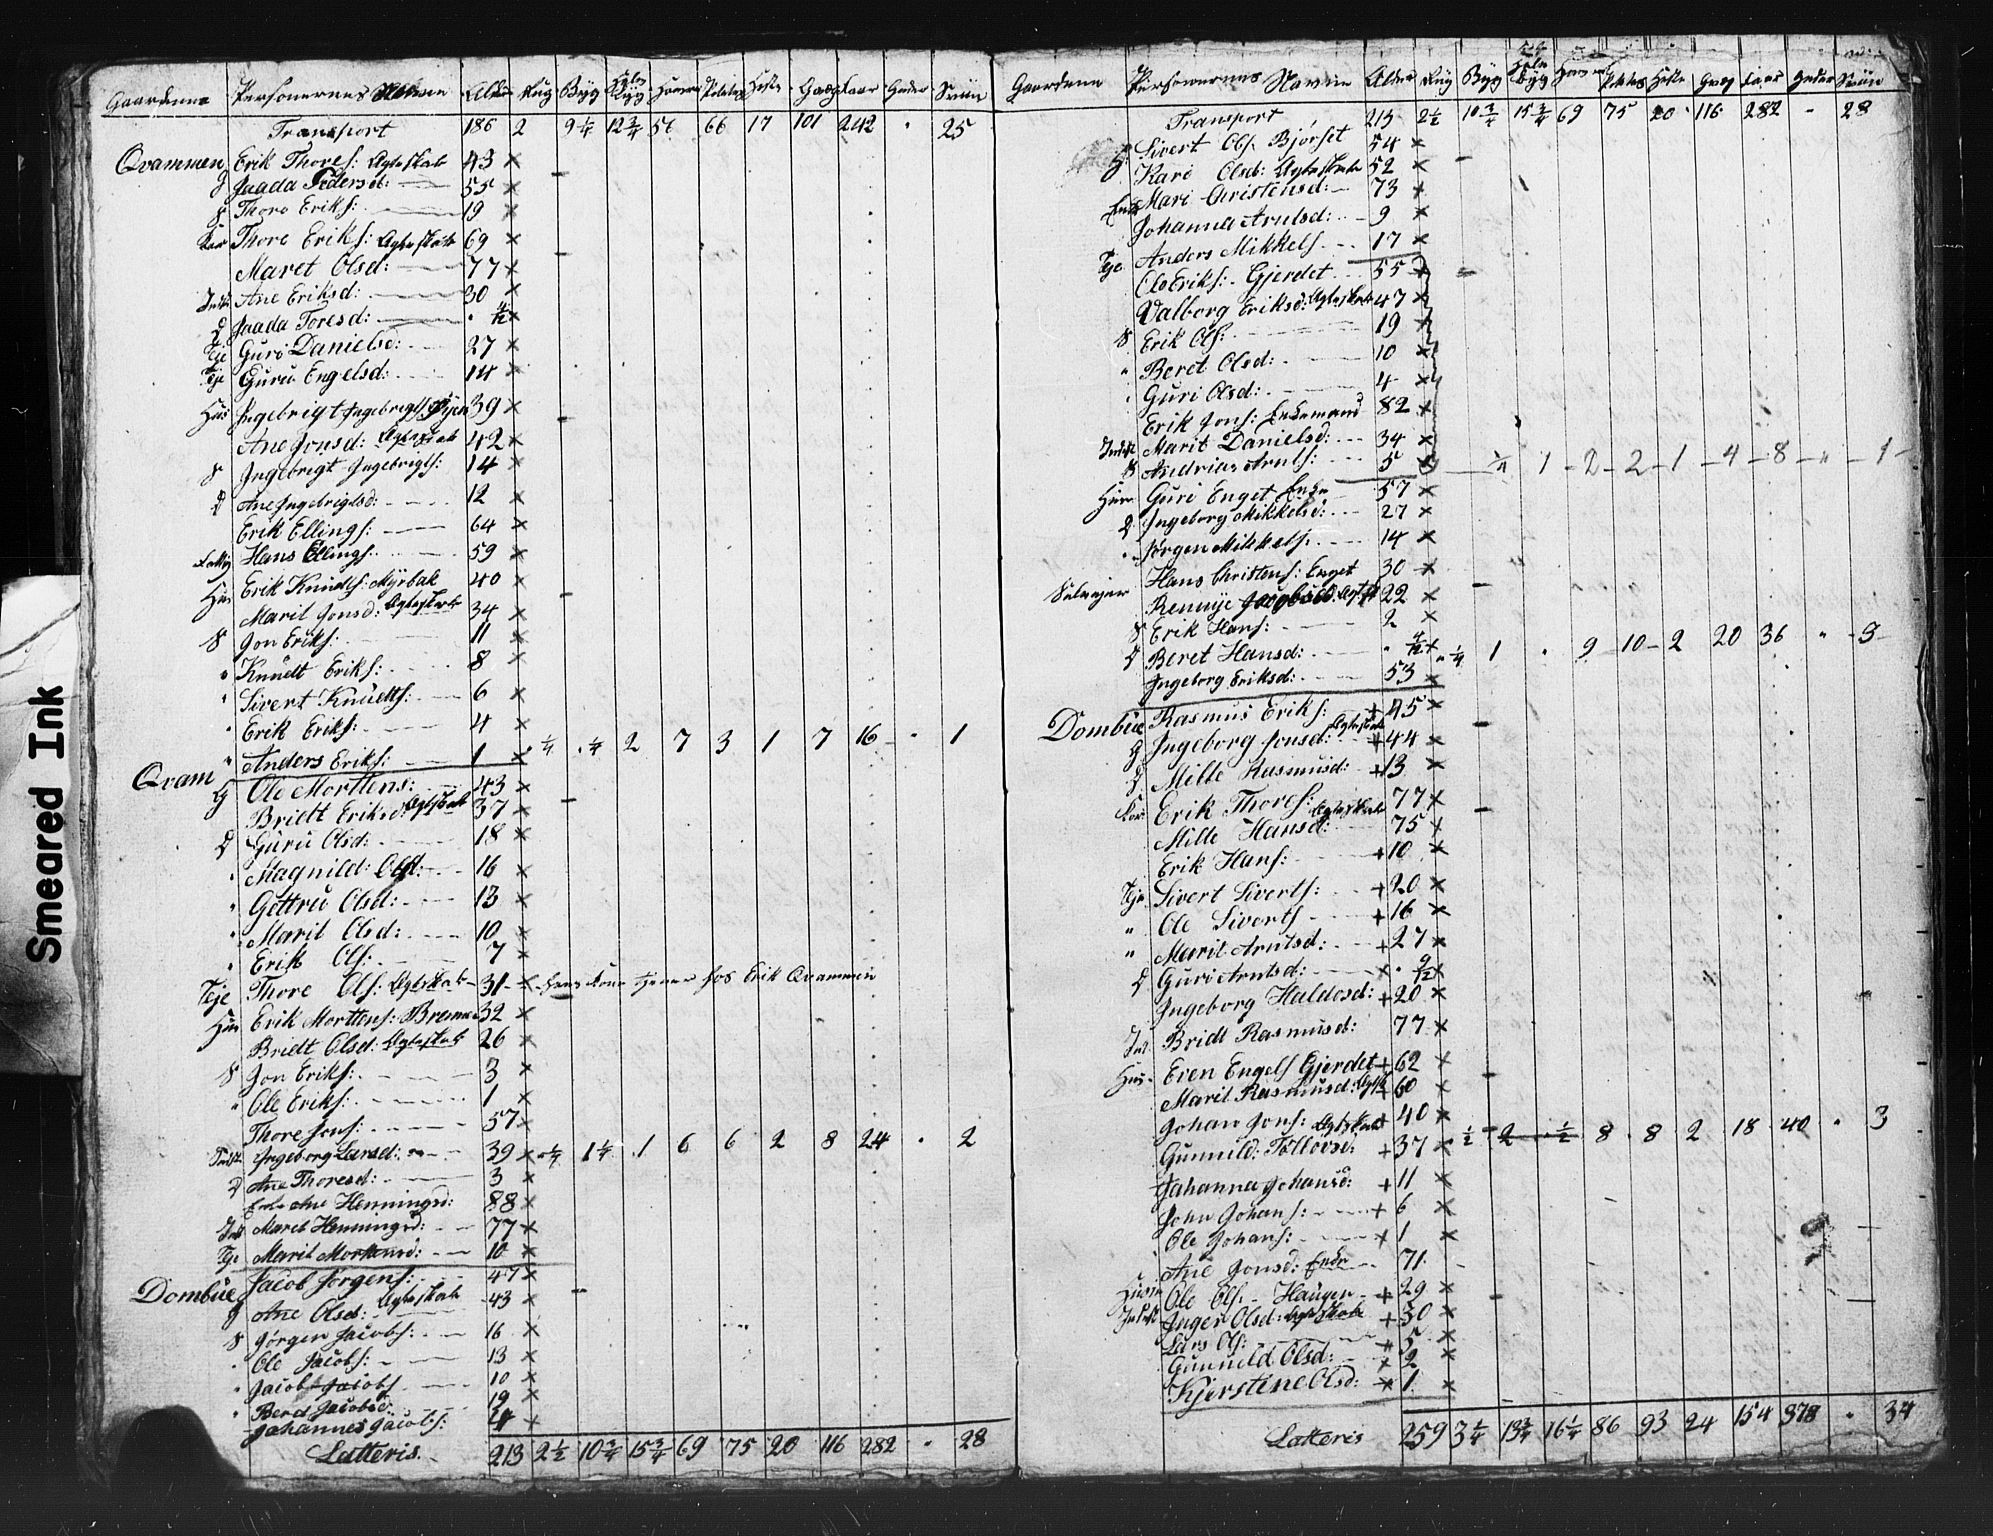 Smeared Ink
Gaardene Personernes Navne Alder Rug Byg Havre Potetes Heste Qvæg Faar Geder Sviin
Transport 186 2 9 1/4 12 3/4 56 66 17 101 242 " 25
Qvammen Erik Thores: Ægteskab 43 ×
Jaada Pedersd: 55 ×
S Thore Eriks: 19 ×
Thore Eriks: Ægteskab 69 ×
Maret Olsd: 77 ×
Inds Ane Eriksd: 30 ×
D Jaada Toresd: " 4/12 ×
Tje Guru Danielsd: 27 ×
Tje Guru Engelsd: 14 ×
Hus Ingebrigt Ingebrigts: 39 ×
Ane Jonsd: Ægteskab 42 ×
S Ingebrigt Ingebrigts: 14 ×
D Ane Ingebrigtsd: 12 ×
Erik Ellings: 64 ×
Hans Ellings: 59 ×
Hus Erik Knudts: Myrbak 40 ×
Marit Jonsd: Ægteskab 34 ×
S Jon Eriks: 11 ×
" Knudt Eriks: 8 ×
" Sivert Knudts: 6 ×
" Erik Eriks: 4 ×
" Anders Eriks: 1 × 1/4 1/4 2 7 3 1 7 16 " 1
Qvam
G Ole Mortens: 43 ×
Briedt Eriksd: Ægteskab 37 ×
D Guru Olsd: 18 ×
" Magnild Olsd: 16 ×
" Gottru Olsd: 13 ×
" Marit Olsd: 10 ×
" Erik Ols: 7 ×
Tje Thore Ols: Ægteskab 31 × hans kone tjener hos Erik Qvammen
Hus Erik Mortens: 32 ×
Briedt Olsd: Ægteskab 26 ×
S Jon Eriks: 3 ×
" Ole Eriks: 1 ×
Thore Jons: 57 ×
Inds Ingeborg Larsd: 39 × 1/4 1 1/4 1 6 6 2 8 24 " 2
D Ane Thoresd: 3 ×
Ane Henningsd: 88 ×
Inds Maret Henningsd: 77 ×
Tje Marit Mortensd: 10 ×
Dombue Jacob Jørgens: 47 ×
G Ane Olsd: Ægteskab 43 ×
S Jørgen Jacobs: 16 ×
" Ole Jacobs: 13 ×
" Jacob Jacobs 10 ×
" Beret Jacobsd: 19 ×
Johannes Jacobs: 4 ×
Latteris. 213 2 1/2 10 3/4 15 3/4 69 75 20 116 282 " 28
Gaardene Personernes Navne Alder Rug Byg Havre Potetes Heste Qvæg Faar Geder Sviin
Transport 213 2 1/2 10 3/4 15 3/4 69 75 20 116 282 " 28
G Sivert Ols: Bjørset 54 ×
Kari Olsd: Ægteskab 52 ×
Enke Mari Christensd: 73 ×
Johanna Arntsd: 9 ×
Tje Anders Mikkels 17 ×
Ole Eriks: Gjerdet 55 ×
Valborg Eriksd: Ægteskab 47 ×
S Erik Ols: 19 ×
" Beret Olsd: 10 ×
" Guri Olsd: 4 ×
Erik Jons: Enkemand 82 ×
Inds Marit Danielsd: 34 ×
S Andrias Arnts: 5 × 1/4 1 2 2 1 4 8 " 1
Huus Guri Enget Enke 57 ×
D Ingeborg Mikkelsd: 27 ×
" Jørgen Mikkels: 14 ×
Selvejer Hans Christens: Enget 30 ×
Rennije Jacobsd: 22 ×
S Erik Hans: 2 ×
D Beret Hansd: " 4/12 × 1/4 1 " 9 10 2 20 36 " 3
Ingeborg Eriksd: 53 ×
Dombue Rasmus Eriks: + 45 ×
G Ingeborg Jonsd: Ægteskab + 44 ×
D Mille Rasmusd: + 13 ×
Erik Thores: Ægteskab 77 ×
Mille Hansd: 75 ×
Erik Hans: + 10 ×
Tje Sivert Siverts: + 20 ×
" Ole Siverts + 16 ×
" Marit Arntsd: + 27 ×
D Guri Arntsd: × " 9/12 ×
Ingeborg Haldosd: + 20 ×
Ind Bridt Rasmusd: 77 ×
Hus Even Engels Gjerdet + 62 ×
Marit Rasmusd: 60 ×
Johan Jons: Ægteskab + 40 ×
Gunnild: Tollovsd: + 37 × 1/2 2 1/2 8 8 2 18 40 " 3
Johanna Johansd: + 11 ×
John Johans: + 6 ×
Ole Johans: × 1 ×
Ane Jonsd: Enke 71
Huus Ole Ols: Haugen + 29 ×
Indst Inger Olsd: Ægteskab + 30 ×
Lars Ols: + 5 ×
Gunnild Olsd: × 2 ×
Kjerstine Olsd: × 1 ×
Latteris 259 3 1/4 13 3/4 16 1/4 86 93 24 154 378 " 34